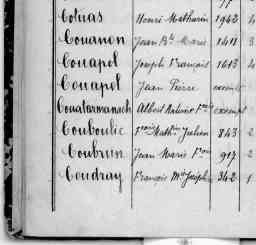 Cotuas Henri Mathurin 1942 4
Couanon Jean Bte Marie 1411 3
Couapel Joseph François 1613 4
Couapel Jean Pierre exempt
Couatarmanach Albert exempt
Couboulic Julien 843 2
Coubrun Jean Marie Fois 917 2
Coudray François Mie Joseph 342 1